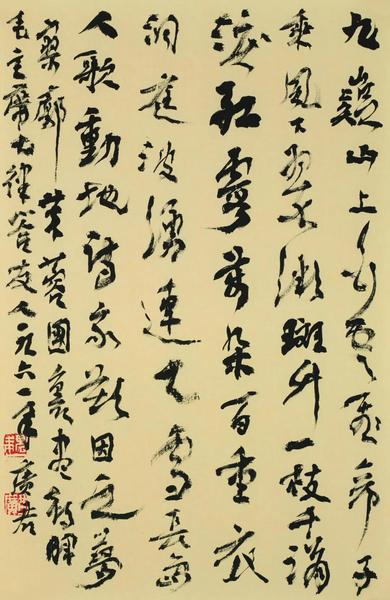 九嶷山上白雲飛帝子
乘風下翠微斑竹一枝千滴
淚紅霞萬朵百重衣
洞庭波湧連天雪長島
人歌動地詩我欲因之夢
寥廓芙蓉國裏盡朝暉
毛主席七律答友人一九六一年